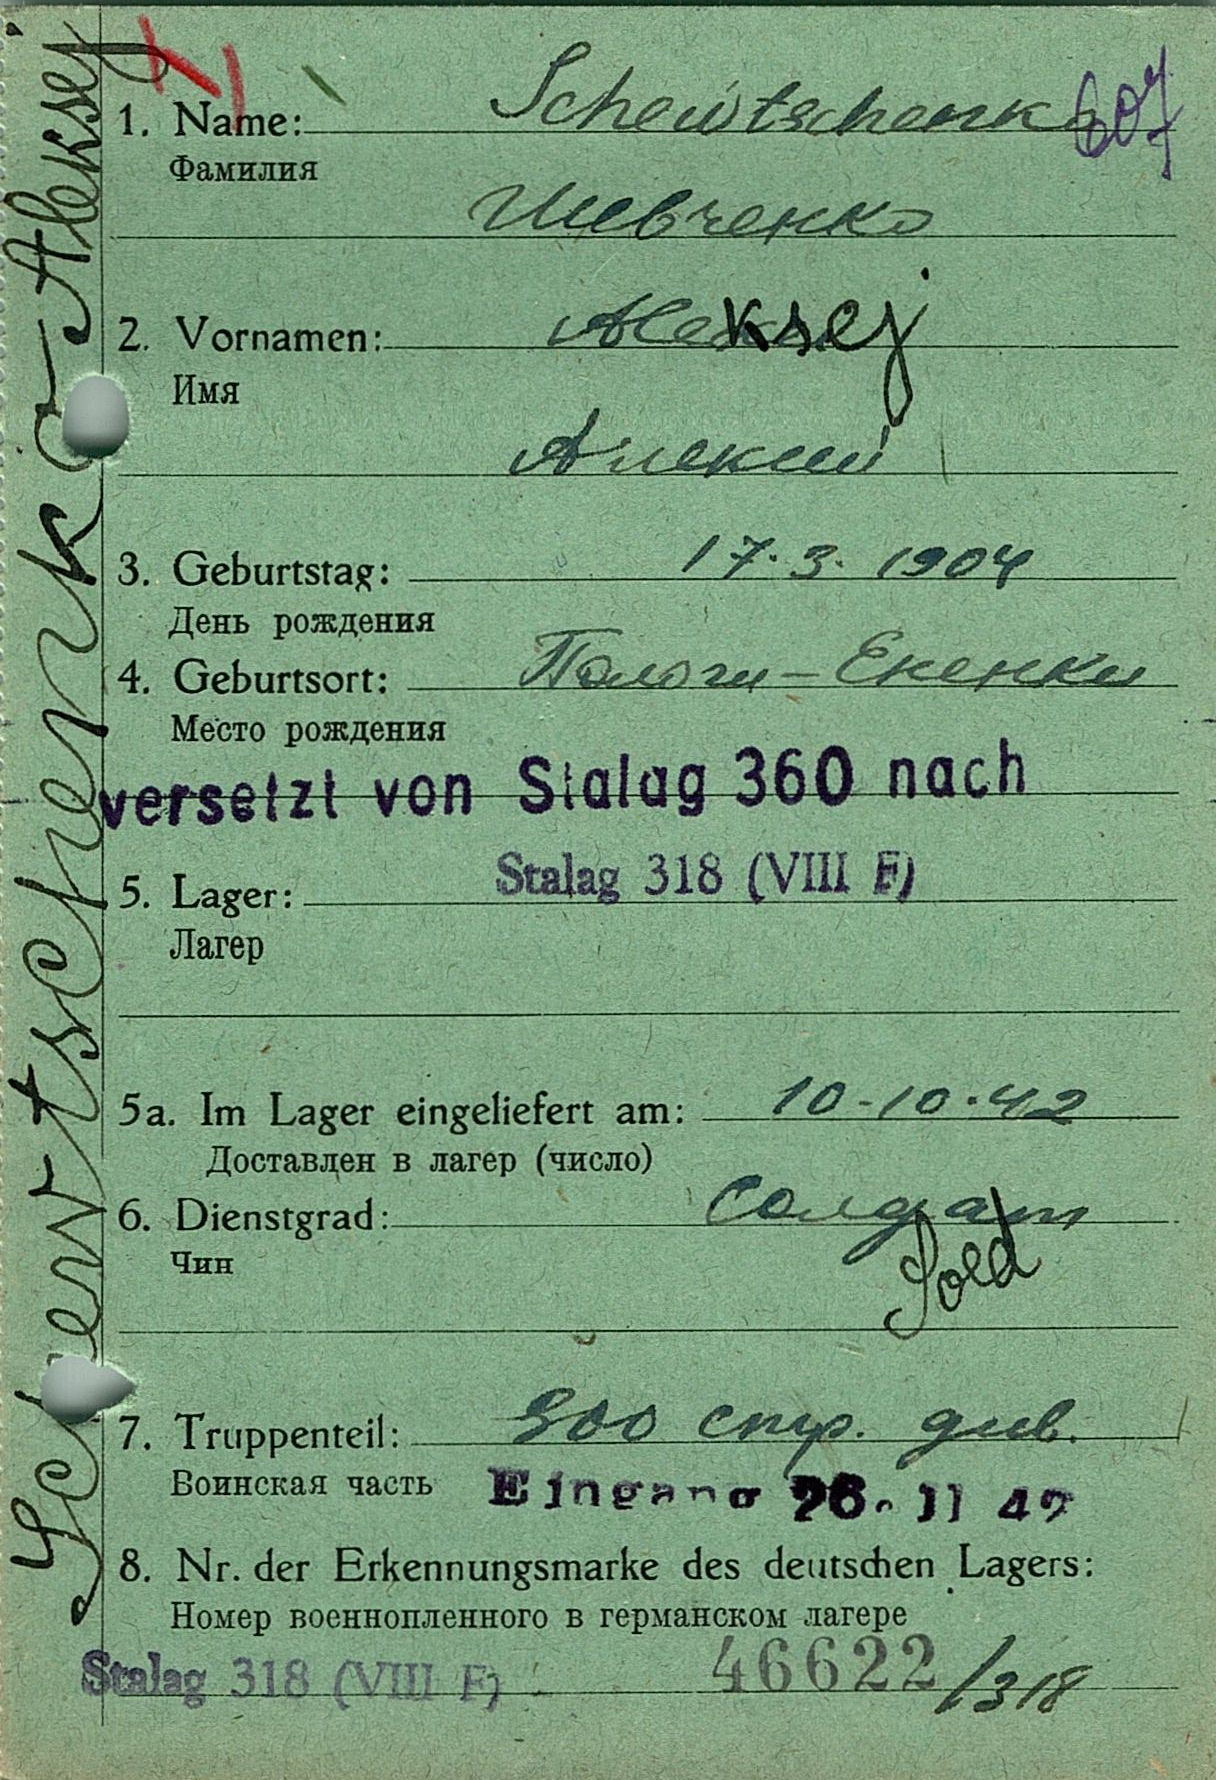 Schewtschenko Aleksej
1. Name: Schewtschenko 607
Фамилия
Шевченко
2. Vornamen: Aleksej
Имя
Алексий
3. Geburtstag: 17.3.1904
День рождения
4. Geburtsort: Пологи-Ененки
Место рождения
versetzt von Stalag 360 nach
Stalag 318 (VIII F)
5. Lager:
Лагер
5a. Im Lager eingeliefert am: 10-10.42
Доставлен в лагер (число)
6. Dienstgrad: Солдат
Чин
Sold
7. Truppenteil: 300 стр. див.
Воинская часть
Eingang 26. 11 42
8. Nr. der Erkennungsmarke des deutschen Lagers:
Номер военнопленного в германском лагере
Stalag 318 (VIII F) 46622/318